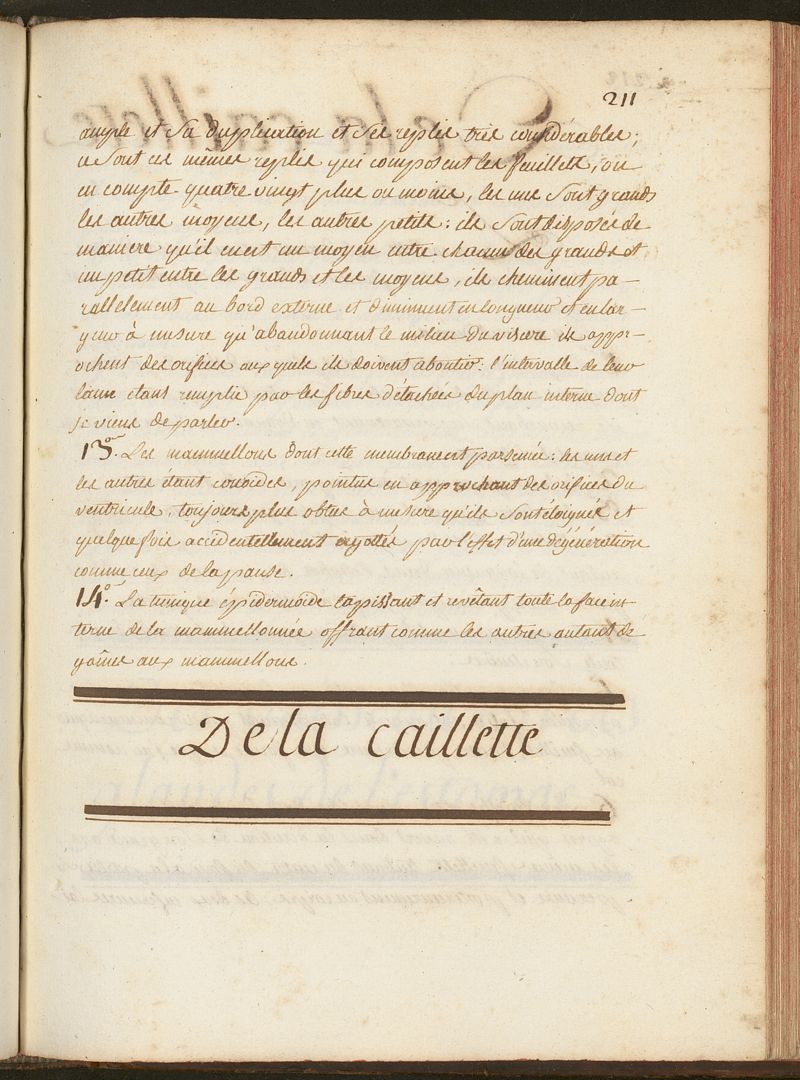 211
ample et sa duplication et ses replis tres considerables;
ce sont ces mêmes replis qui composent les feuillets, on
en compte quatre vingt plus ou moins, les uns sont grands
les autres moyens, les autres petits: ils sont disposés de
maniere qu'il en est un moyen entre chacun des grands et
un petit entre les grands et les moyens, ils cheminent pa-
rallelement au bord externe et diminuent en longueur et en lar-
geur à mesure qu'abandonnant le milieu du viscere ils appr-
ochent des orifices aux quels ils doivent aboutir: l'intervalle de leur
lame étant remplie par les fibres détachées du plan interne dont
je viens de parler.
13°. Les mammellons dont cette membrane est parsemée: les uns et
les autres étant conoides, pointus en approchant des orifices du
ventricule, toujours plus obtus à mesure qu'ils sont éloignés et
quelque fois accidentellement ergottés par l'effet d'une dégénération
comme ceux de la panse.
14°. La tunique épidermoide tapissant et revêtant toute la face in-
terne de la mammellonnée offrant comme les autres autant de
gaînes aux mammellons.
De la caillette